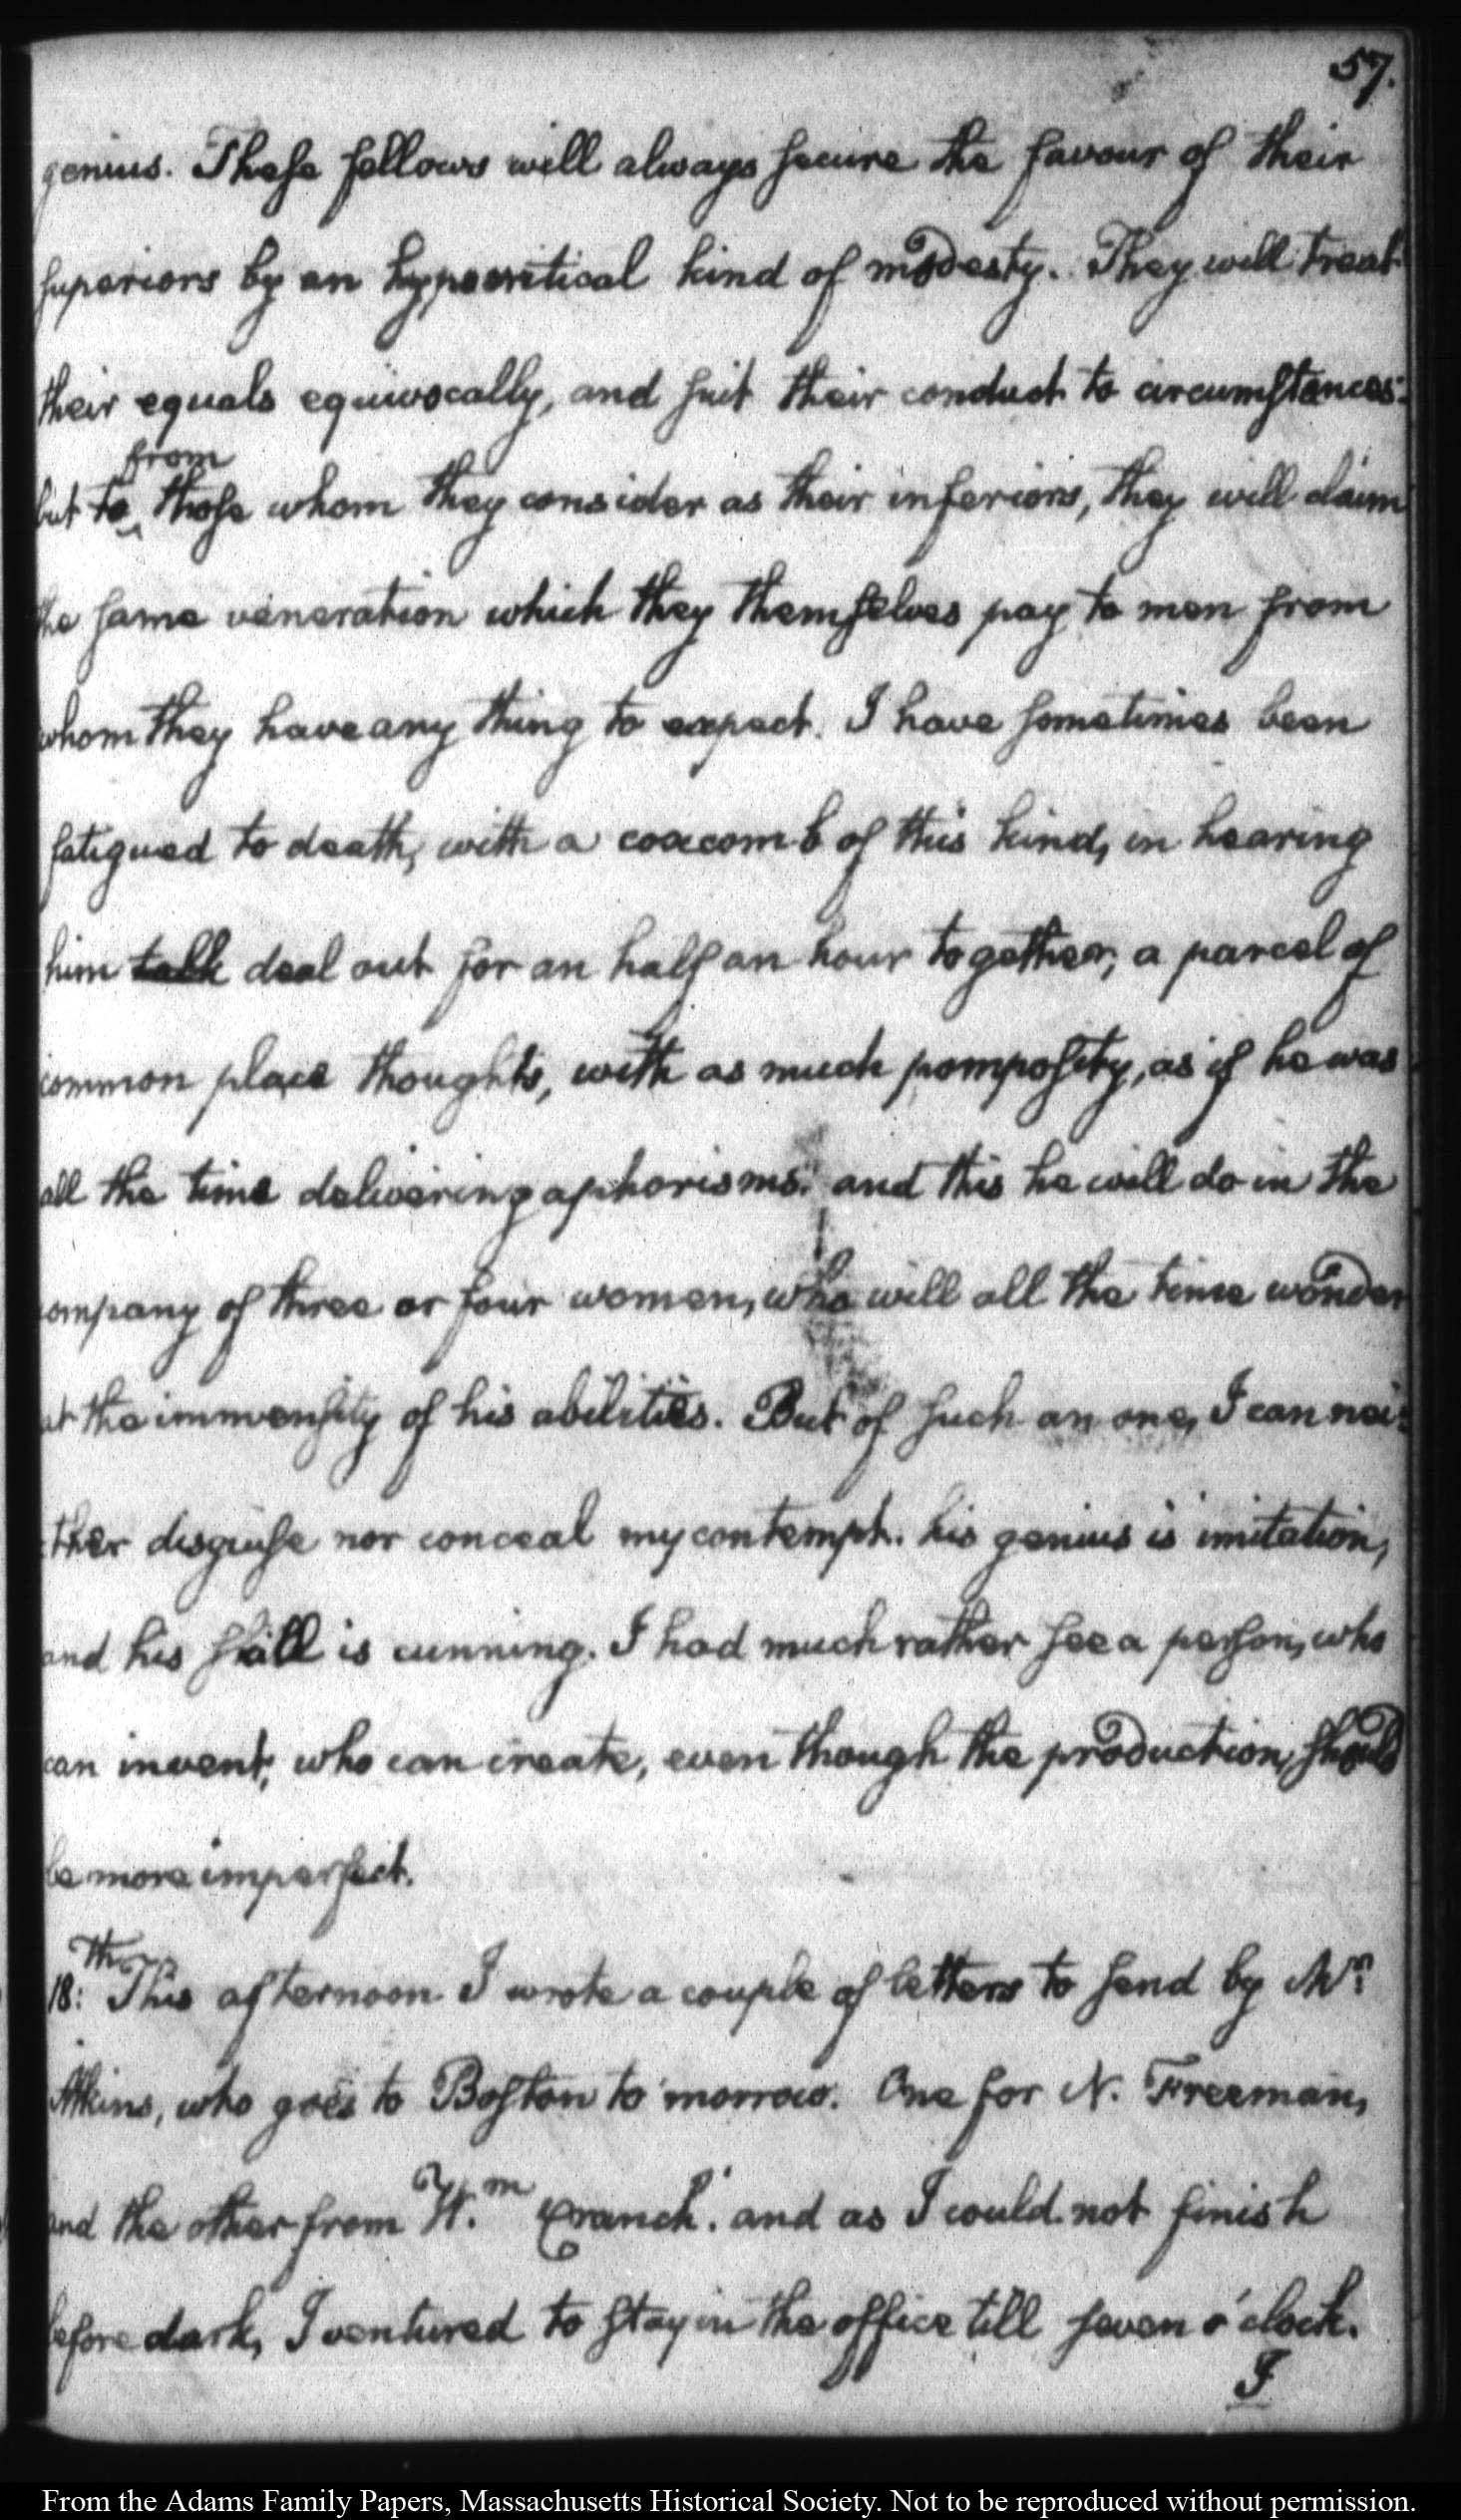 57.
genius. These fellows will always secure the favour of their
superiors by an hypocritical kind of modesty. They will treat
their equals equivocally, and suit their conduct to circumstances:
from
but to those whom they consider as their inferiors, they will claim
the same veneration which they themselves pay to men from
whom they have any thing to expect. I have sometimes been
fatigued to death, with a coxcomb of this kind, in hearing
him talk deal out for an half an hour together, a parcel of
common place thoughts, with as much pomposity, as if he was
all the time delivering aphorisms: and this he will do in the
company of three or four women, who will all the time wonder
at the immensity of his abilities. But of such an one, I can nei:
:ther disguise nor conceal my contempt. his genius is imitation,
and his skill is cunning. I had much rather see a person, who
can invent, who can create, even though the production, should
be more imperfect.
18:th This afternoon I wrote a couple of letters to send by Mr.
Atkins, who goes to Boston to morrow. One for N. Freeman,
and the other from W.m Cranch: and as I could not finish
before dark, I ventured to stay in the office till seven o'clock.
I
From the Adams Family Papers, Massachusetts Historical Society. Not to be reproduced without permission.